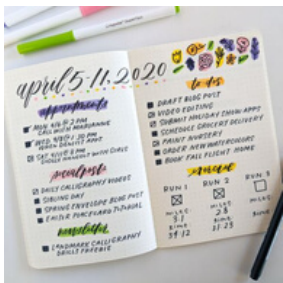 april 5-11, 2020
appointments
MON 4/6 @ 2 PM
CALL WITH MARYANNE
WED 4/8 @ 1:30 PM
SAT 4/11 @ 8 PM
WITH GIRLS
DAILY CALLIGRAPHY VIDEOS
SIBLING DAY
SPRING ENVELOPE BLOG POST
EASTER POSTCARD TUTORIAL
newsletter
LANDMARK CALLIGRAPHY
SKILLS FREEBIE
to-dos
DRAFT BLOG POST
VIDEO EDITING
SUBMIT HOLIDAY SHOW APPS
SCHEDULE GROCERY DELIVERY
PAINT NURSERY
ORDER NEW WATERCOLORS
BOOK FALL FLIGHT HOME
exercise
RUN 1
RUN 2
RUN 3
MILES:
3.1
MILES:
2.8
MILES:
TIME:
TIME:
TIME: